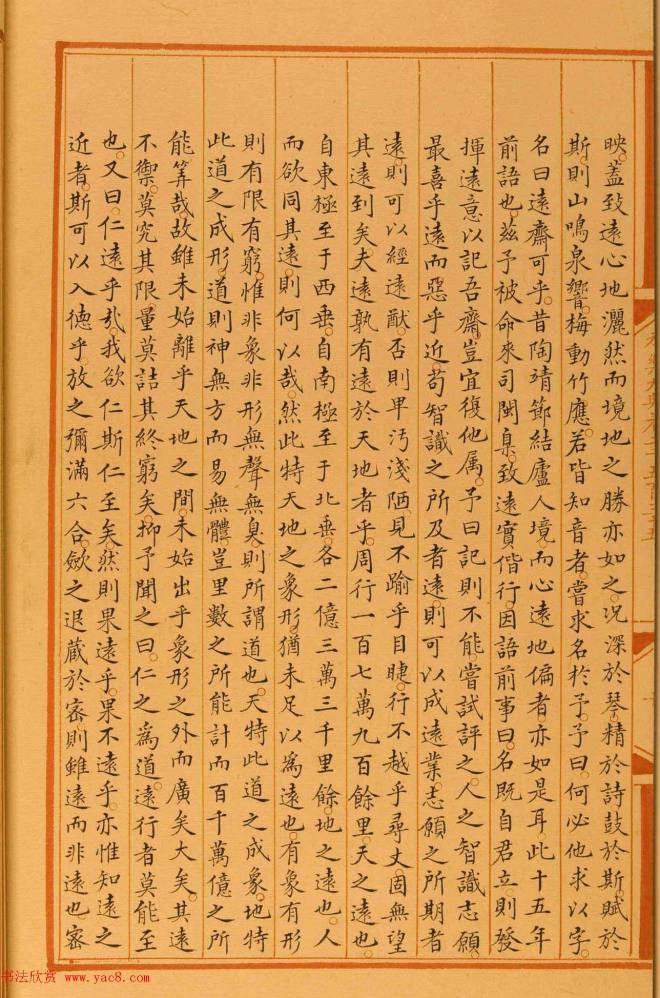 映。蓋致遠心地灑然而境地之勝亦如之。况深於琴。精於詩。鼓於斯。賦於
斯。則山鳴泉響。梅動竹應。若皆知音者。嘗求名於予。予曰。何必他求。以字
名曰遠齋可乎。昔陶靖節結廬人境。而心遠地偏者。亦如是耳。此十五年
前語也。茲予被命來司閩臬。致遠實偕行。因語前事曰。名既自君立。則發
揮遠意以記吾齋。豈宜復他属。予曰。記則不能。嘗試評之。人之智識志願。
最喜乎遠而惡乎近。苟智識之所及者遠。則可以成遠業。志願之所期者
遠。則可以經遠猷。否則卑污淺陋。見不踰乎目睫。行不越乎尋丈。固無望
其遠到矣。夫遠孰有遠於天地者乎。周行一百七萬九百餘里。天之遠也。
自東極至于西垂。自南極至于北垂。各二億三萬三千里餘。地之遠也。人
而欲同其遠。則何以哉。然此特天地之象形。猶未足以爲遠也。有象有形
則有限有窮。惟非象非形無聲無臭。則所謂道也。天特此道之成象。地特
此道之成形。道則神無方而易無體。豈里數之所能計而百千萬億之所
能筭哉。故雖未始離乎天地之間。未始出乎象形之外。而廣矣大矣。其遠
不禦。莫究其限量。莫詰其終窮矣。抑予聞之曰。仁之爲道。遠行者莫能至
也。又曰。仁遠乎哉。我欲仁斯仁至矣。然則果遠乎。果不遠乎。亦惟知遠之
近者。斯可以入德乎。放之彌滿六合。斂之退藏於密。則雖遠而非遠也。密
书法欣赏 www.yac8.com